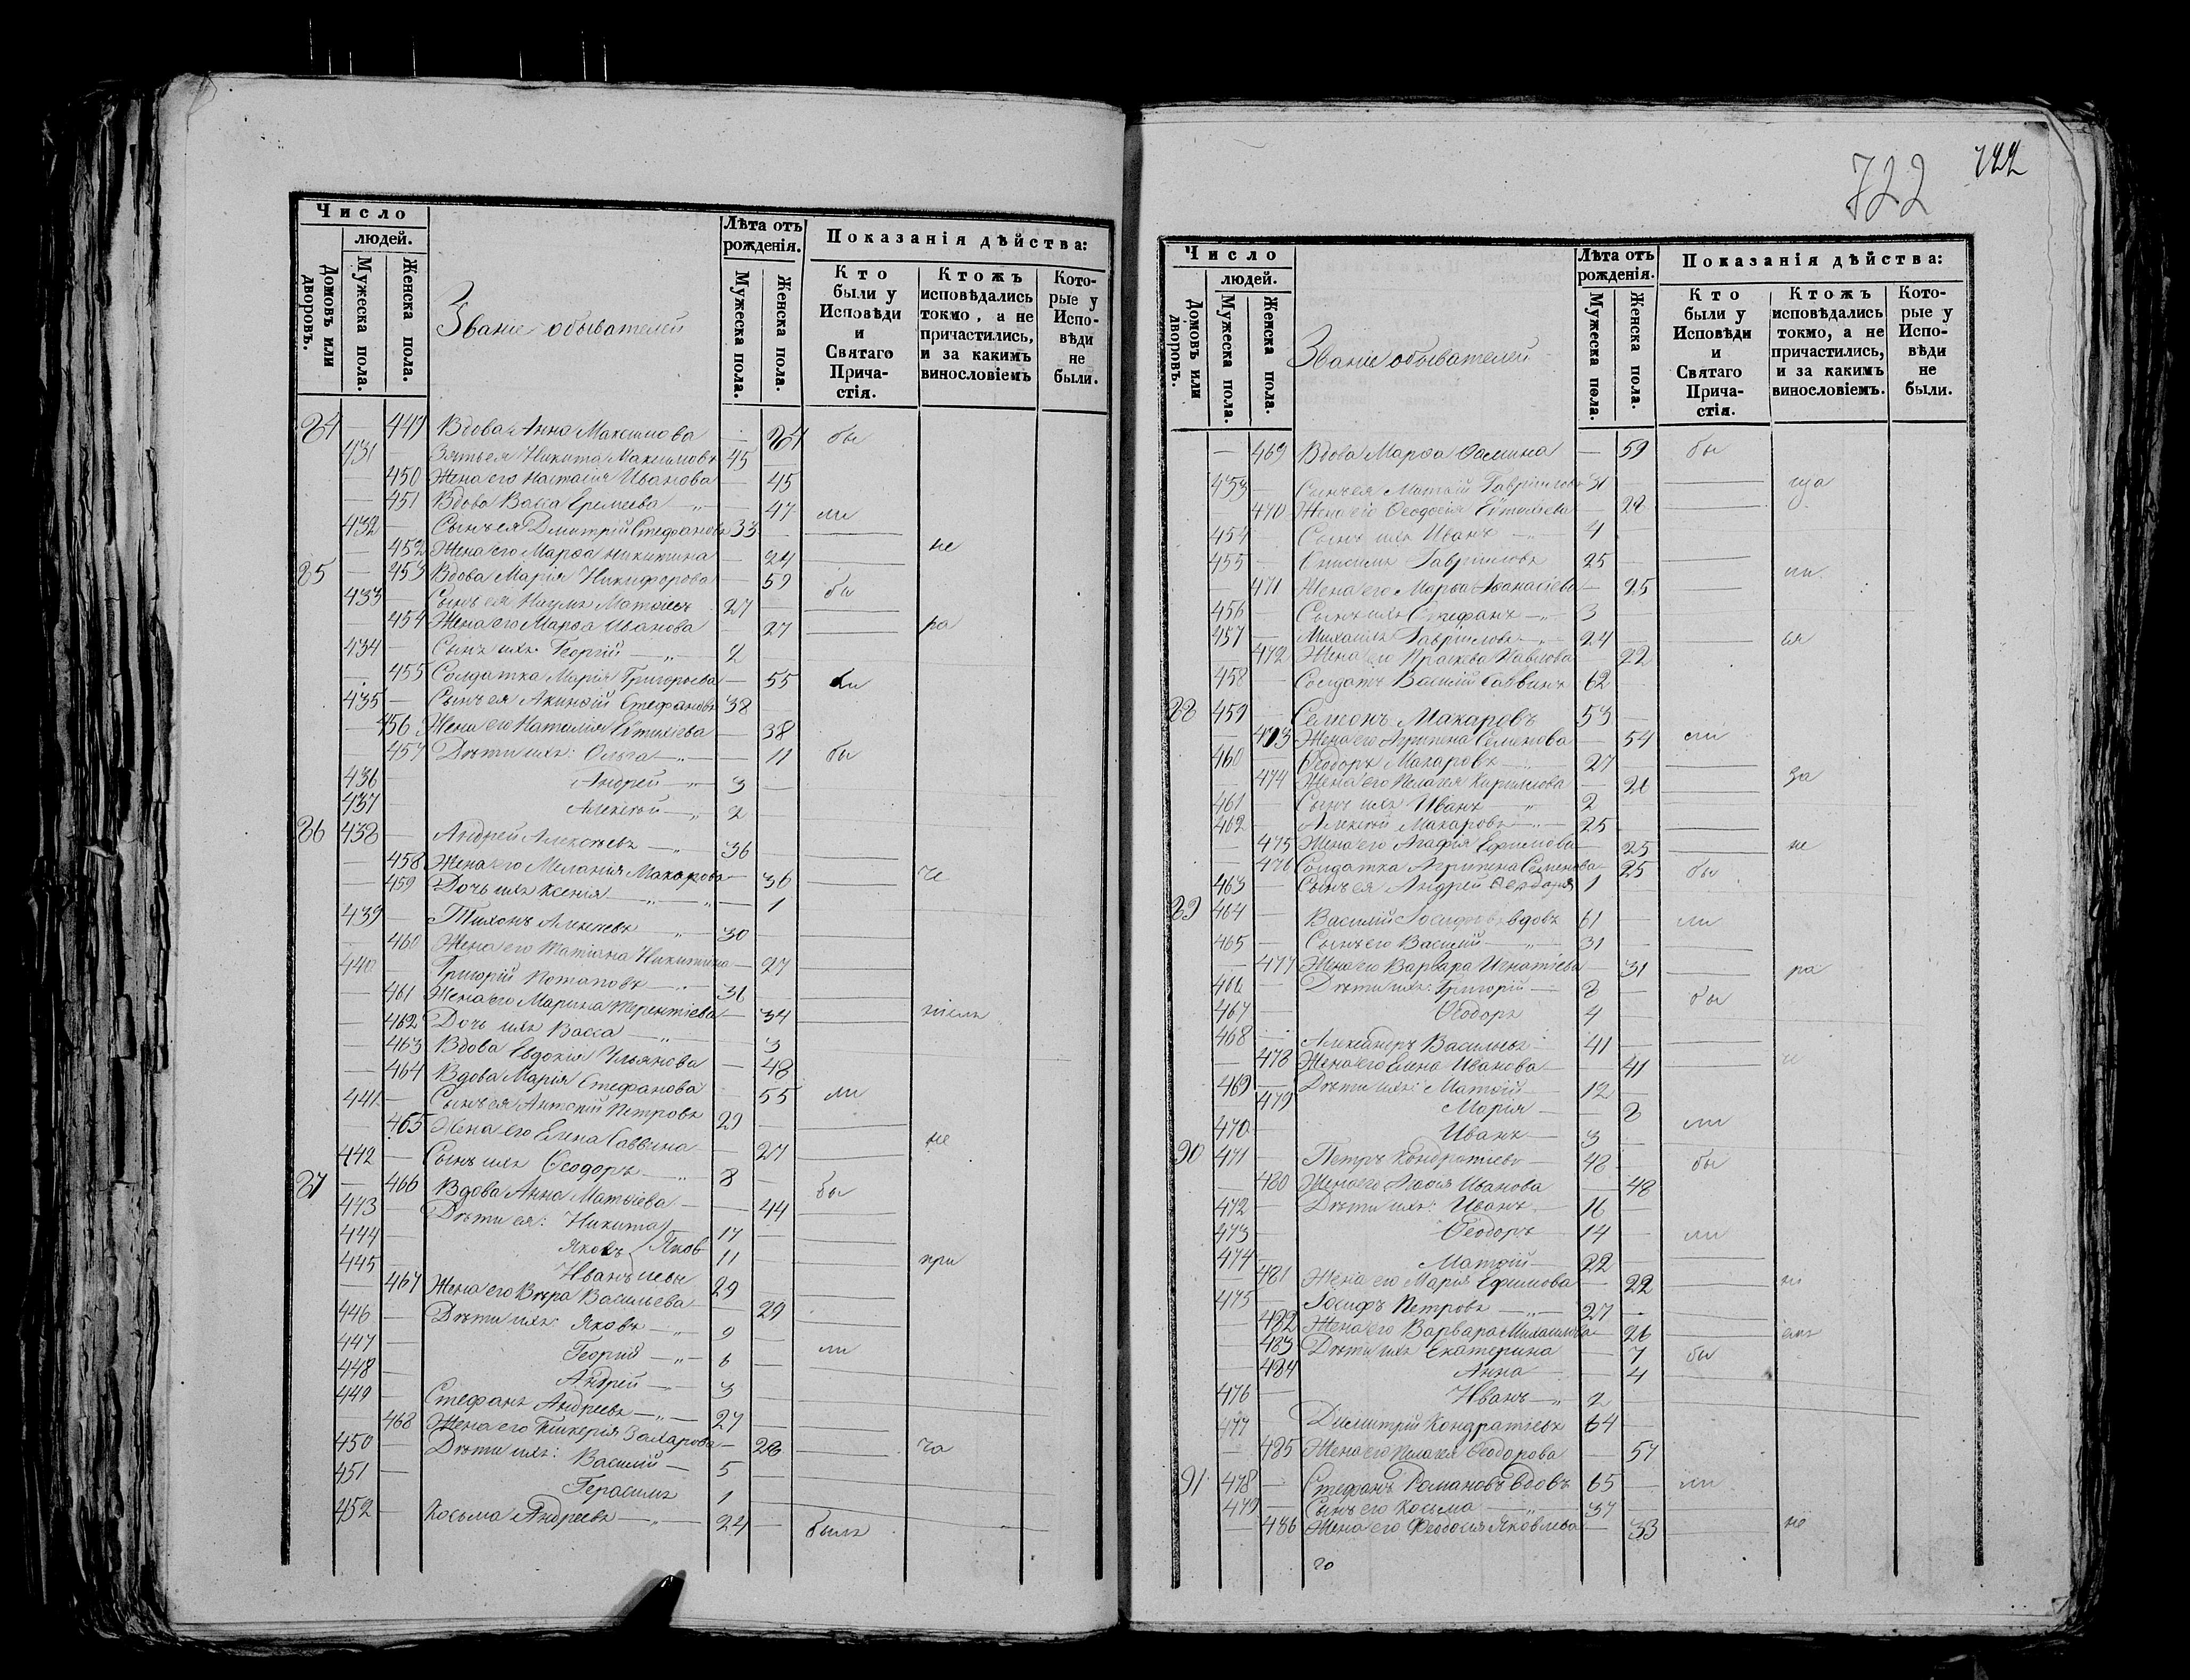 Число
людей.
Домовъ или дворовъ.
Мужеска пола.
Женска пола.
Званіе обывателей
Лѣта отъ рожденія.
Мужеска пола.
Женска пола.
Показанія дѣйства:
Кто были у Исповѣди и Святаго Прича-стія.
Ктожъ исповѣдались токмо, а не причастились, и за какимъ винословіемъ
Кото-рые у Испо-вѣди не были.
84 — 449 Вдова Анна Максимова — 84 бы
431 — Зятьея Никита Максимовъ 45 —
— 450 Жена его Настасія Иванова — 45
— 451 Вдова Васса Еремеева — 47 ли
432 — Сынъ ея Дмитрій Стефановъ 33 —
— 452 Жена его Марѳа Никитина — 24 не
85 — 453 Вдова Марія Никифорова — 59 бы
433 — Сынъ ея Наумъ 27 —
— 454 Жена его Марѳа Иванова — 27 ра
434 — Сынъ ихъ Георгій — 2
— 455 Солдатка Марія Григорьева — 55 ли
435 — Сынъ ея Стефановъ 38 —
— 456 Жена его Наталія Евтихіева — 38
— 457 Дѣти ихъ: Ольга — 11 бы
436 Андрей — 3 —
437 Алексѣй — 2
86 438 — Андрей Алексѣевъ — 36 —
— 458 Жена его Меланія Макарова — 36 че
— 459 Дочь ихъ Ксенія — 1
439 — Тихонъ Алексѣевъ — 30 —
— 460 Жена его Татіана Никитина — 27
440 — Григорій Потаповъ — 36 —
— 461 Жена его Марина Терентіева — 34
— 462 Дочь ихъ Васса — 3
— 463 Вдова Евдокія Ульянова — 48
— 464 Вдова Марія Стефанова — 55 ли
441 — Сынъ ея Петровъ 29 —
— 465 Жена его Елена Саввина — 27 не
442 — Сынъ ихъ Ѳеодоръ — 8 —
87 — 466 Вдова Анна Матвѣева — 44 бы
443 — Дѣти ея: Никита 17 —
444 — Яковъ 11 —
445 Иванъ 29 при
— 467 Жена его Вѣра Васильева — 29
446 — Дѣти ихъ: Яковъ — 9
447 — Георгій — 6 — ли
448 — Андрей — 3
449 — Стефанъ Андреевъ — 27 —
— 468 Жена его Гликерія Захарова — 28 ча
450 — Дѣти ихъ: Василій — 5
451 — Герасимъ 1
452 — Косьма Андреевъ — 24 — былъ
722
722
Число
людей.
Домовъ или дворовъ.
Мужеска пола.
Женска пола.
Званіе обывателей
Лѣта отъ рожденія.
Мужеска пола.
Женска пола.
Показанія дѣйства:
Кто были у Исповѣди и Святаго Прича-стія.
Ктожъ исповѣдались токмо, а не причастились, и за какимъ винословіемъ.
Кото-рые у Испо-вѣди не были.
— 469 Вдова Марѳа Ѳомина — 59 бы
453 — Сынъ ея Матѳій Гавріиловъ 31 —
— 470 Жена его Ѳеодосія Евтихіева — 28
454 — Сынъ ихъ Иванъ — 4
455 — Гавріиловъ 25 —
— 471 Жена его Марѳа Аѳанасіева — 25
456 — Сынъ ихъ Стефанъ — 3
457 — Михаилъ Гавріиловъ — 24 — ся
— 472 Жена его Праскева Павлова — 22
458 — Солдатъ Василій Саввинъ 62
88 459 — Семеонъ Макаровъ 53 —
— 473 Жена его Агрипена Семенова — 54 ли
460 — Ѳеодоръ Макаровъ — 27 —
— 474 Жена его Пелагея Кириллова — 26 за
461 — Сынъ ихъ Иванъ — 2
462 — Алексѣй Макаровъ — 25 —
— 475 Жена его Агафія Ефимова — 25 не
— 476 Солдатка Агрипена Семенова — 25 бы
463 — Сынъ ея Андрей 1 —
89 464 — Василій Іосифовъ вдовъ 61 — ли
465 — Сынъ его Василій — 31 —
— 477 Жена его Варвара Игнатіева — 31 ра
466 — Дѣти ихъ: Григорій — 8 — бы
467 — Ѳеодоръ 4 —
468 — Александръ Васильевъ 41 —
— 478 Жена его Елена Иванова — 41 че
469 — Дѣти ихъ: Матѳій — 12 —
479 Марія — 8
470 Иванъ — 3 — ли
90 471 — Петръ Кондратіевъ — 48 — бы
— 480 Жена его Иванова — 48
472 — Дѣти ихъ: Иванъ — 16 —
473 — Ѳеодоръ 14 — ли
474 — Матѳій — 22 —
— 481 Жена его Марія Ефимова — 22
475 — Іосифъ Петровъ — 27 —
— 482 Жена его Варвара Михаилова — 26
— 483 Дѣти ихъ Екатерина — 7 бы
— 484 Анна — 4
476 — Иванъ — 2
477 — Димитрій Кондратіевъ 64 —
— 485 Жена его Пелагея Ѳеодорова — 57
91 478 — Стефанъ Романовъ вдовъ 65 — ли
479 — Сынъ его Косьма — 37 —
— 486 Жена его Ѳеодосія Яковлева — 33 не